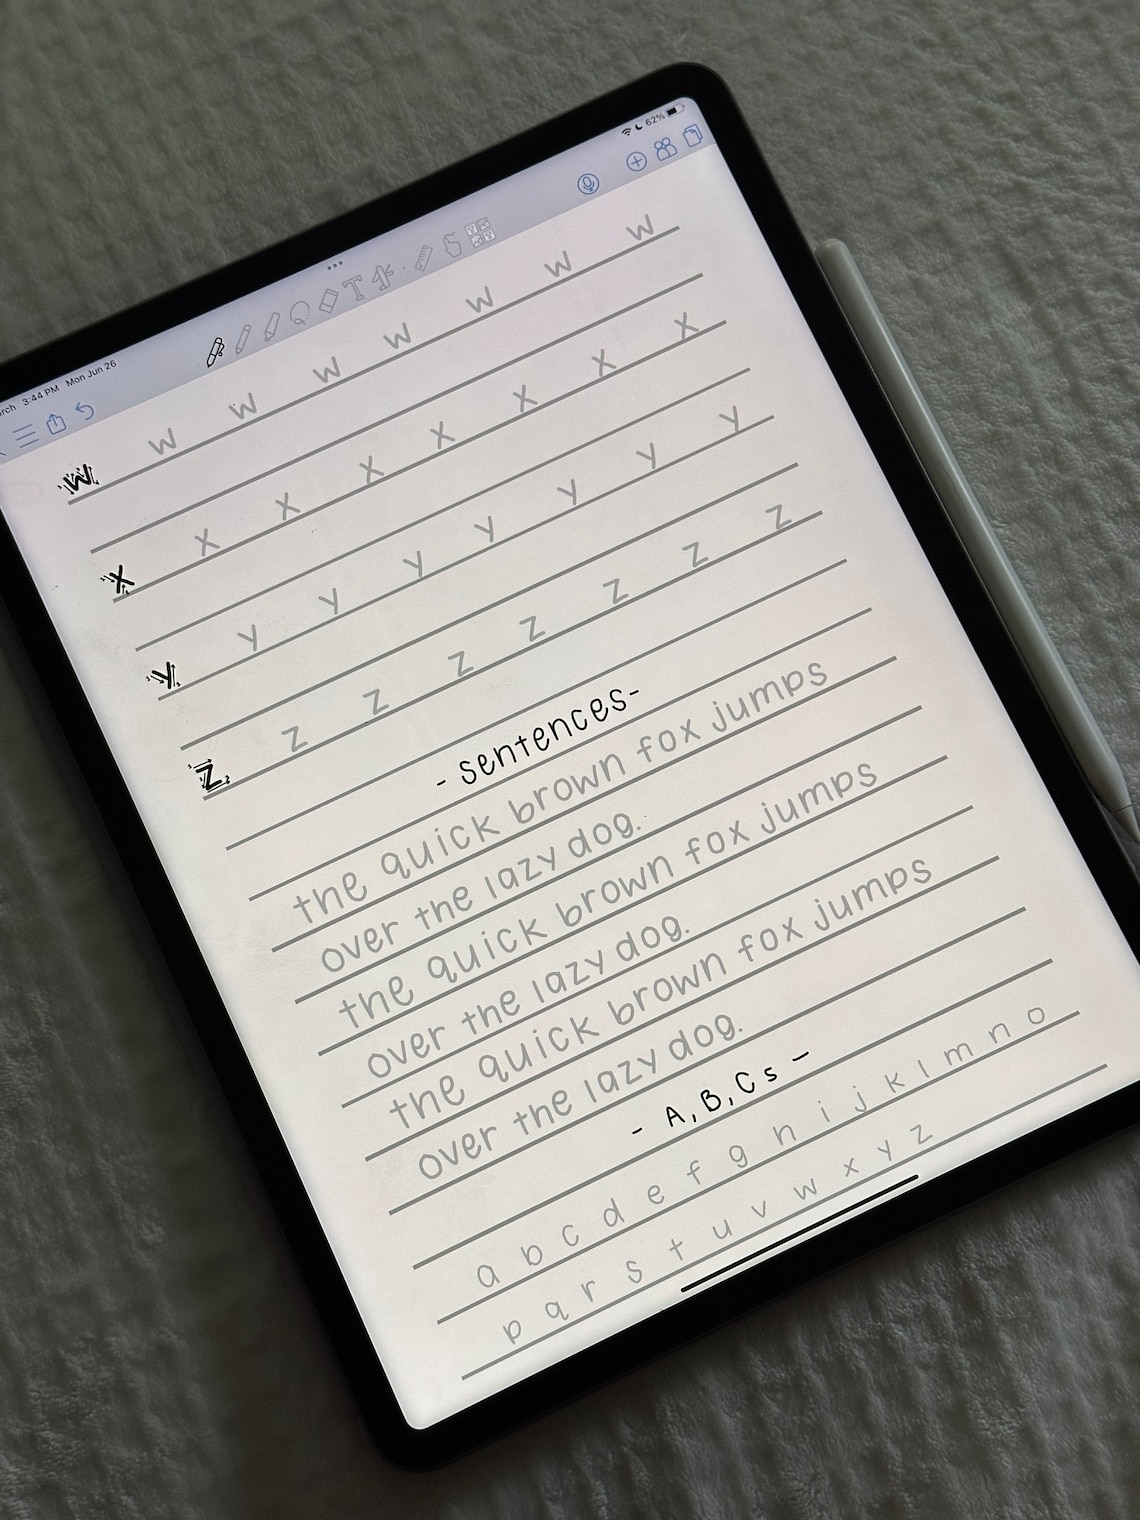 62%
3:44 PM Mon Jun 26
w w w w w w w w
x x x x x x x x
y y y y y y y y
z z z z z z z z
- sentences-
the quick brown fox jumps
over the lazy dog.
the quick brown fox jumps
over the lazy dog.
the quick brown fox jumps
over the lazy dog.
- A, B, C s -
a b c d e f g h i j k l m n o
p q r s t u v w x y z